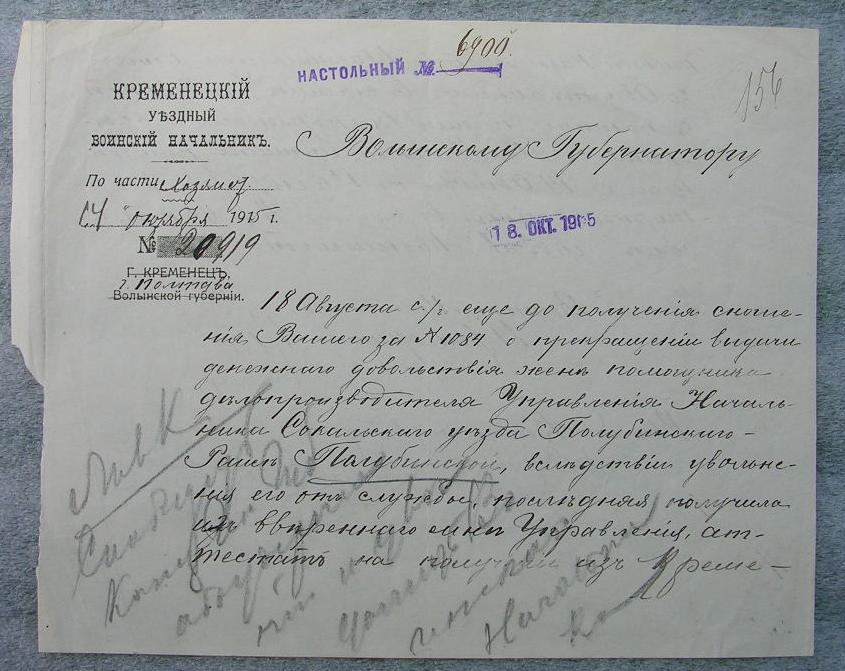 НАСТОЛЬНЫЙ №. 6900.
156
КРЕМЕНЕЦКІЙ
УѢЗДНЫЙ
ВОИНСКІЙ НАЧАЛЬНИКЪ.
По части Хозяйст.
14 " октября 1915 г.
№ 20919
Г. КРЕМЕНЕЦЪ,
г. Полтава
Волынской губерніи.
Волынскому Губернатору
18. ОКТ. 1915
18 Августа с/г. еще до полученія сноше-
нія Вашего за № 1084 о прекращеніи выдачи
денежнаго довольствія женѣ помощника
дѣлопроизводителя Управленія Началь-
ника Сокальскаго уѣзда Полубинскаго-
Раисѣ Полубинской, вслѣдствіи увольне-
нія его отъ службы, послѣдняя получила
изъ ввѣреннаго мнѣ Управленія, ат-
тестатъ на полученіе изъ Креме-